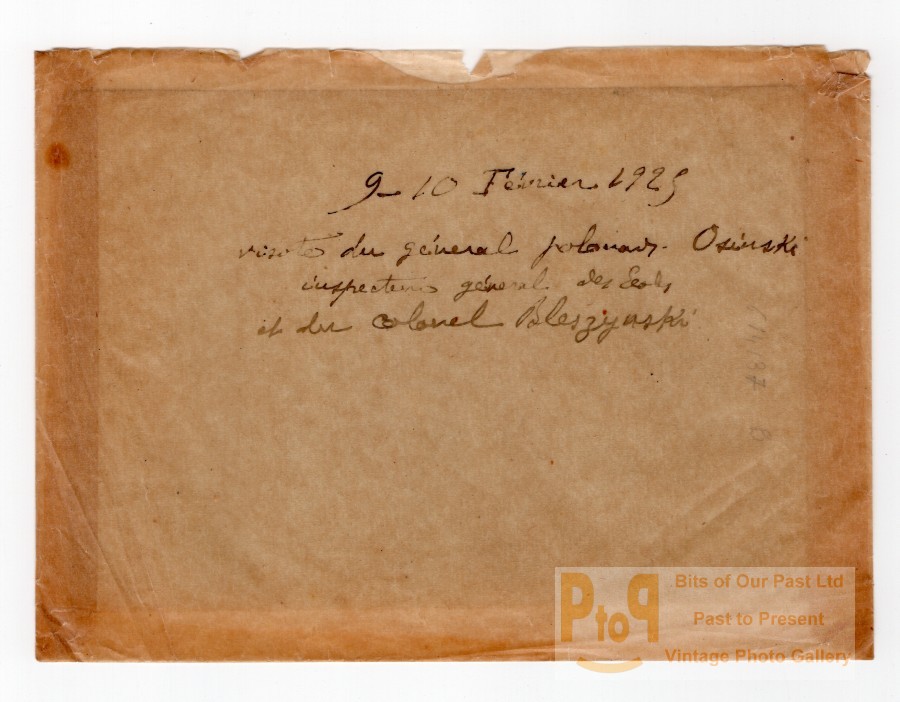 9-10 Février 1925
visite du général polonais Osinski
inspecteur général des Ecoles
et du colonel Bleszynski
PtoP
Bits of Our Past Ltd
Past to Present
Vintage Photo Gallery